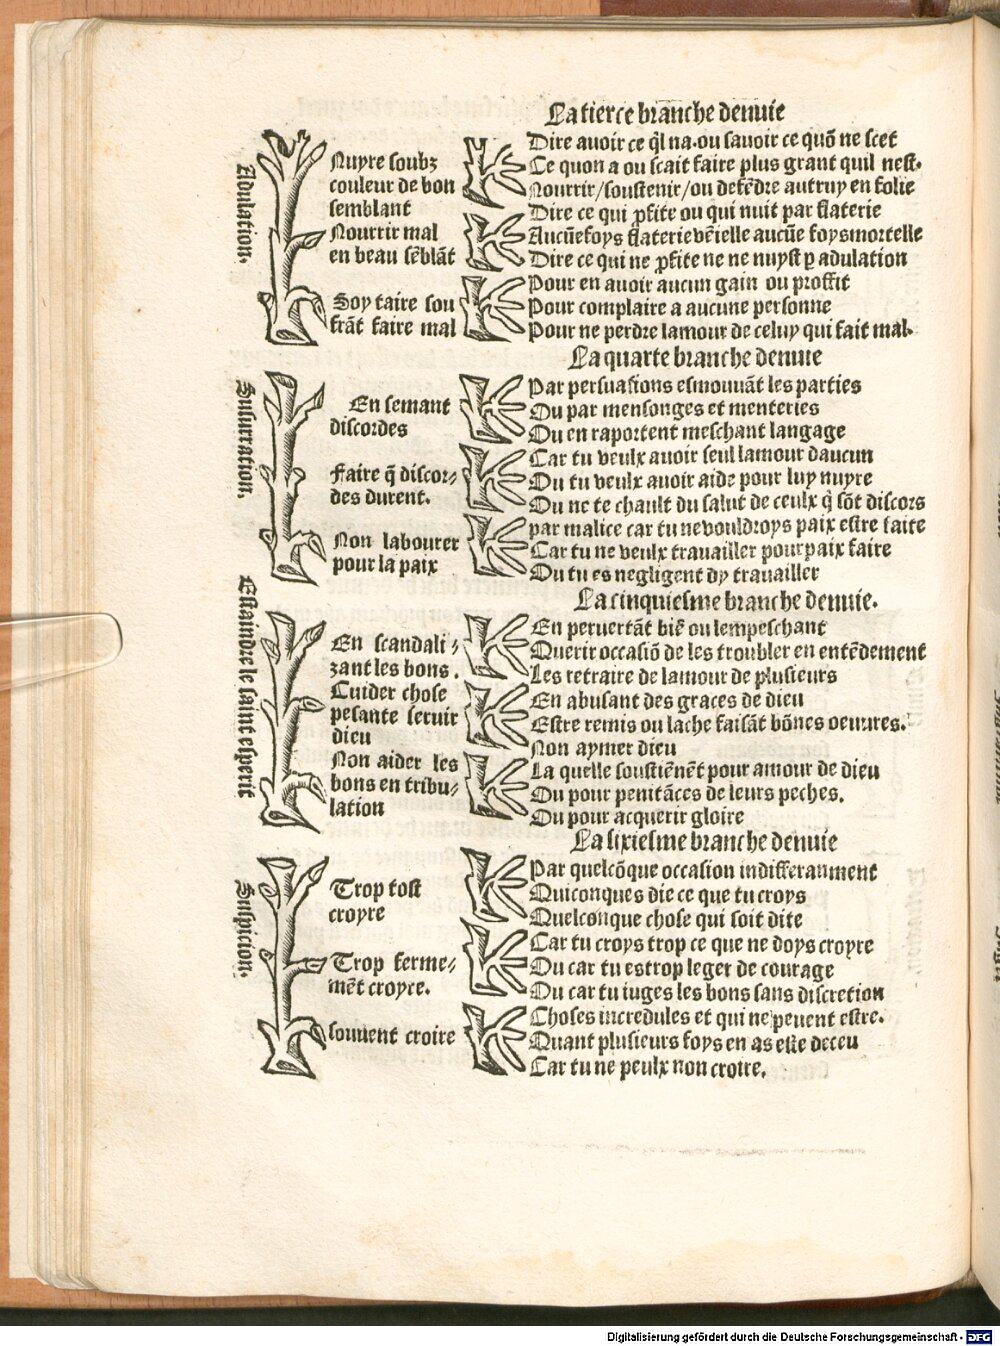 La tierce branche denuie
Adulation.
Nuyre soubz
couleur de bon
semblant
Nourrir mal
en beau sēblāt
Soy taire sou
frāt faire mal
Dire avoir ce ql̄ na.ou savoir ce quō ne scet
Ce quon a ou scait faire plus grant quil nest.
Nourrir/soustenir/ou defēdre autruy en folie
Dire ce qui ꝓfite ou qui nuit par flaterie
Aucūefoys flaterie vēielle aucūe foys mortelle
Dire ce qui ne ꝓfite ne ne nuyst ꝑ adulation
Pour en avoir aucun gain ou proffit
Pour complaire a aucune personne
Pour ne perdre lamour de celuy qui fait mal.
La quarte branche denuie
Susurration.
En semant
discordes
Faire q̄ discor-
des durent.
Non labourer
pour la paix
Par persuasions esmouvāt les parties
Ou par mensonges et menteries
Ou en raportent meschant langage
Car tu veulx avoir seul lamour daucun
Ou tu veulx avoir aide pour luy nuyre
Ou ne te chault du salut de ceulx q̄ sōt discors
par malice car tu ne vouldroys paix estre faite
Car tu ne veulx travailler pour paix faire
Ou tu es negligent dy travailler
La cinquiesme branche denuie.
Estaindre le saint esperit
En scandali-
zant les bons.
Cuider chose
pesante servir
dieu
Non aider les
bons en tribu-
lation
En pervertāt biē ou lempeschant
Querir occasiō de les troubler en entēdement
Les retraire de lamour de plusieurs
En abusant des graces de dieu
Estre remis ou lache faisāt bōnes oeuvres.
Non aymer dieu
La quelle soustiēnēt pour amour de dieu
Ou pour penitāces de leurs peches.
Ou pour acquerir gloire
La sixiesme branche denuie
Suspicion.
Trop tost
croyre
Trop ferme-
mēt croyre.
souvent croire
Par quelcōque occasion indifferanment
Quiconques die ce que tu croys
Quelconque chose qui soit dite
Car tu croys trop ce que ne doys croyre
Ou car tu es trop leger de courage
Ou car tu iuges les bons sans discretion
Choses incredules et qui ne pevent estre.
Quant plusieurs foys en as este deceu
Car tu ne peulx non croire.
Digitalisierung gefördert durch die Deutsche Forschungsgemeinschaft - DFG